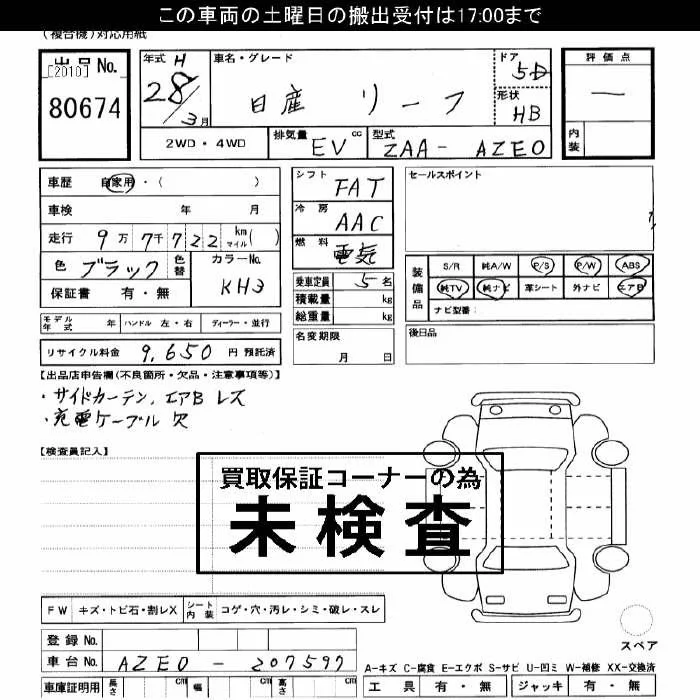 この車両の土曜日の搬出受付は17:00まで
(複合機)対応用紙
出品 No.
[2010]
80674
年式 H
28/3月
車名・グレード
日産 リーフ
ドア
5D
形状
HB
評価点
―
内装
2WD・4WD
排気量 EV cc
型式 ZAA- AZE0
車歴 自家用・( )
車検 年 月
走行 9万7千722 km マイル( )
色 ブラック 色替
カラーNo.
KH3
保証書 有・無
シフト FAT
冷房 AAC
燃料 電気
乗車定員 5 名
積載量 kg
総重量 kg
名変期限
月 日
セールスポイント
装備品
S/R 純A/W P/S P/W ABS
純TV 純ナビ 革シート 外ナビ エアB
ナビ型番:
後日品
モデル年式 年 ハンドル 左・右 ディーラー・並行
リサイクル料金 9,650 円 預託済
【出品店申告欄(不良箇所・欠品・注意事項等)】
・サイドカーテン,エアB レス
・充電ケーブル 欠
【検査員記入】
買取保証コーナーの為
未検査
FW キズ・トビ石・割レX シート内装 コゲ・穴・汚レ・シミ・破レ・スレ
スペア
登録 No.
車台 No. AZE0 - 207597
車庫証明用 長さ cm 幅 cm 高さ cm
A-キズ C-腐食 E-エクボ S-サビ U-凹ミ W-補修 XX-交換済
工具 有・無 ジャッキ 有・無